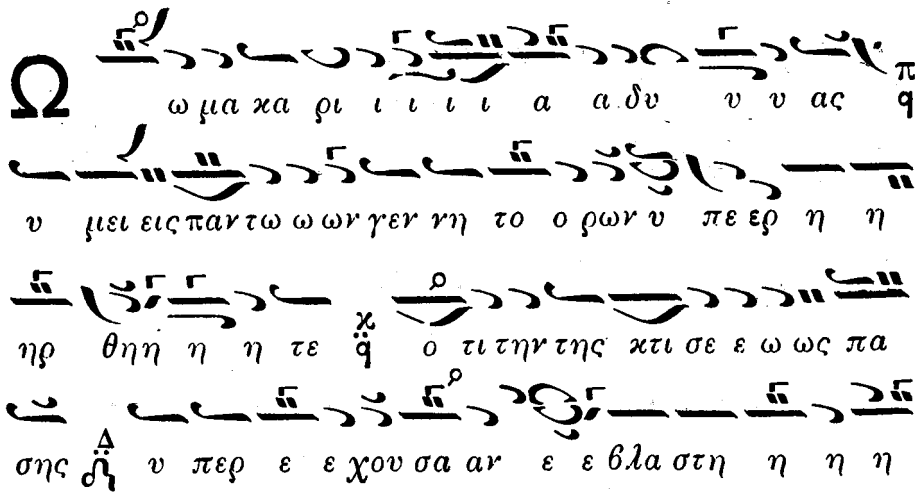 Ω ω μα κα ρι ι ι ι ι α α δυ υ υ ας π q
υ μει εις παν τω ω ων γεν νη το ο ρων υ πε ερ η η
ηρ θη η η η τε κ q ο τι την της κτι σε ε ω ως πα
σης Δ υ περ ε ε χου σα αν ε ε βλα στη η η η